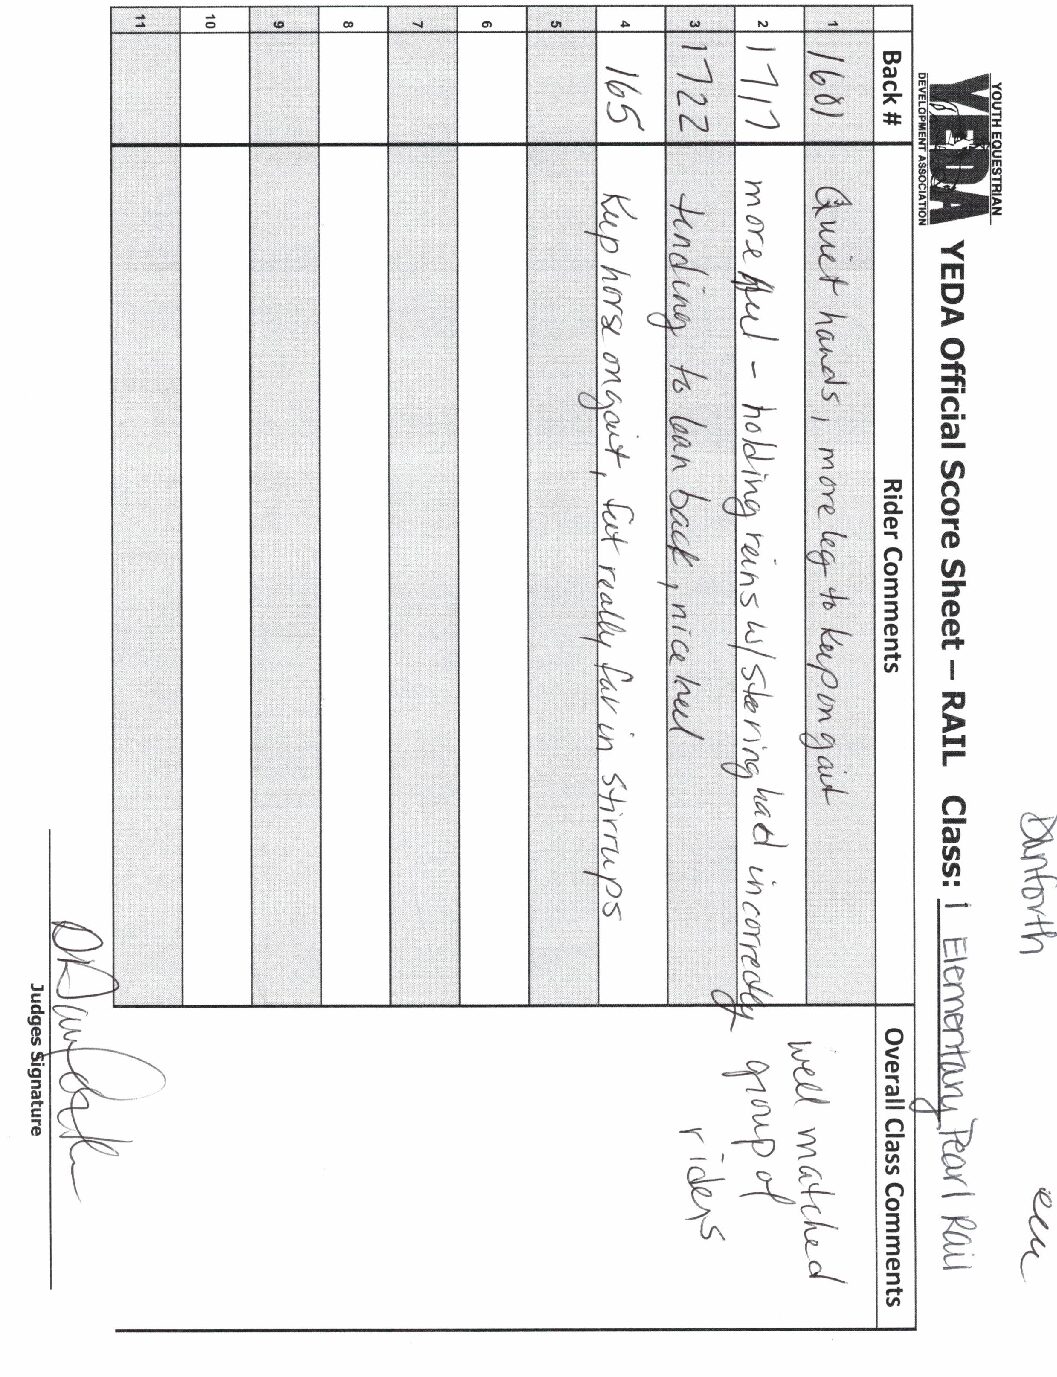 Danforth
YOUTH EQUESTRIAN
YEDA
DEVELOPMENT ASSOCIATION
YEDA Official Score Sheet – RAIL Class: 1 Elementary Pearl Rail
Back # Rider Comments Overall Class Comments
1 1601 Quiet hands, more leg to keep on gait
2 1717 more heel - holding reins w/ steering hand incorrectly
3 1722 tending to lean back, nice heel
4 165 Keep horse on gait, feet really far in stirrups
5
6
7
8
9
10
11
well matched
group of
riders
Judges Signature